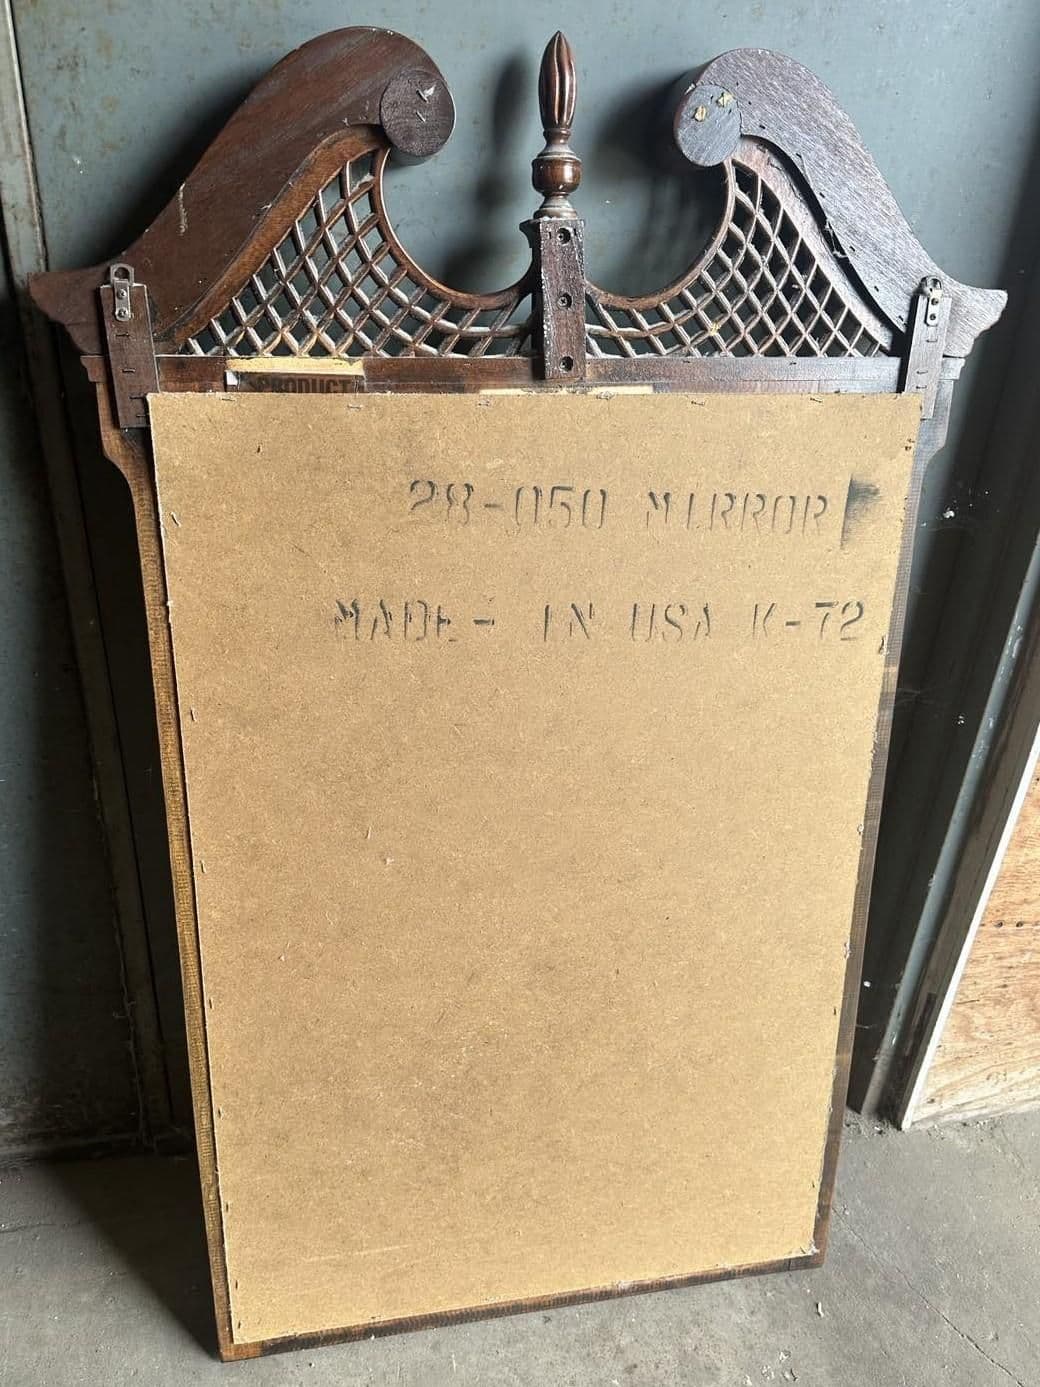 PRODUCT
28-050 MIRROR
MADE- IN USA K-72